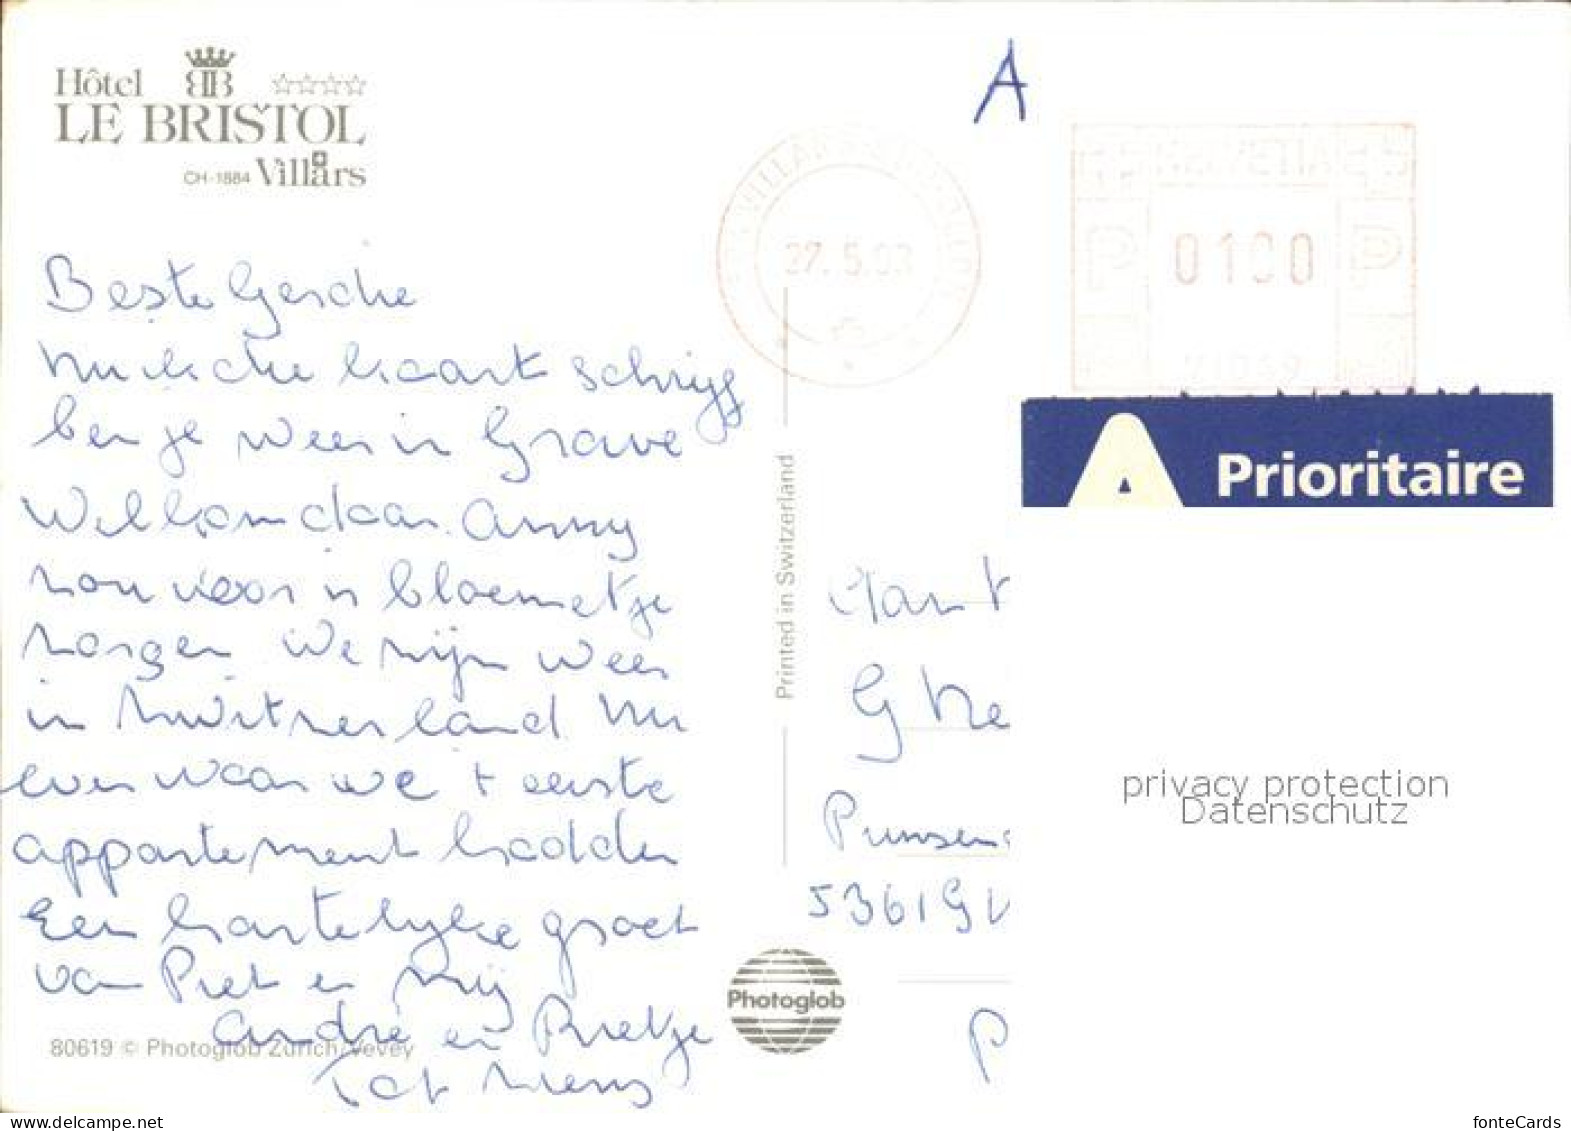 Hôtel BB
LE BRISTOL
CH-1884 Villars
A
HELVETIA
27.5.93
P 0100 P
Prioritaire
Beste Gerdie
Nu ik die kaart schrijf
ben je weer in Grave
Welkom daar. Anny
zou voor 'n bloemetje
zorgen. We zijn weer
in Zwitzerland Nu
even waar we + eerste
appartement hadden
Een hartelijke groet
van Piet en mij
André en Pietje
Tot ziens
Printed in Switzerland
G
5361 G
P
privacy protection
Datenschutz
Photoglob
80619 © Photoglob Zürich/Vevey
fonteCards